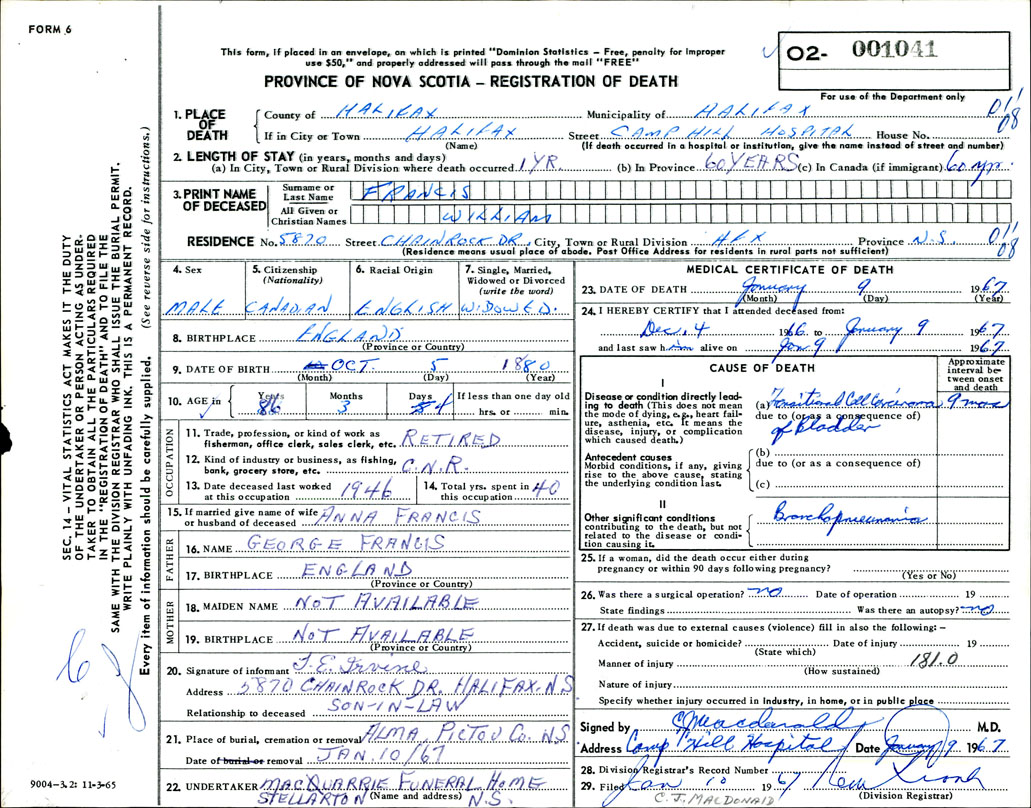 FORM 6
This form, if placed in an envelope, on which is printed "Dominion Statistics – Free, penalty for improper
use $50," and properly addressed will pass through the mail "FREE"
O2- 001041
PROVINCE OF NOVA SCOTIA – REGISTRATION OF DEATH
For use of the Department only
SEC. 14 – VITAL STATISTICS ACT MAKES IT THE DUTY
OF THE UNDERTAKER OR PERSON ACTING AS UNDER-
TAKER TO OBTAIN ALL THE PARTICULARS REQUIRED
IN THE "REGISTRATION OF DEATH" AND TO FILE THE
SAME WITH THE DIVISION REGISTRAR WHO SHALL ISSUE THE BURIAL PERMIT.
WRITE PLAINLY WITH UNFADING INK. THIS IS A PERMANENT RECORD.
Every item of information should be carefully supplied. (See reverse side for instructions.)
1. PLACE OF DEATH
County of HALIFAX Municipality of HALIFAX 011
08
If in City or Town HALIFAX Street CAMP HILL HOSPITAL House No.
(Name) (If death occurred in a hospital or institution, give the name instead of street and number)
2. LENGTH OF STAY (in years, months and days)
(a) In City, Town or Rural Division where death occurred 1 YR. (b) In Province 60 YEARS (c) In Canada (if immigrant) 60 yr.
3. PRINT NAME OF DECEASED
Surname or Last Name FRANCIS
All Given or Christian Names WILLIAM
RESIDENCE No. 5870 Street CHAINROCK DR, City, Town or Rural Division HFX Province N.S. 011
08
(Residence means usual place of abode. Post Office Address for residents in rural parts not sufficient)
4. Sex MALE
5. Citizenship (Nationality) CANADIAN
6. Racial Origin ENGLISH
7. Single, Married, Widowed or Divorced (write the word) WIDOWED.
8. BIRTHPLACE ENGLAND
(Province or Country)
9. DATE OF BIRTH OCT. 5 1880
(Month) (Day) (Year)
10. AGE in Years 86 Months 3 Days 4 If less than one day old
hrs. or min.
OCCUPATION
11. Trade, profession, or kind of work as
fisherman, office clerk, sales clerk, etc. RETIRED
12. Kind of industry or business, as fishing,
bank, grocery store, etc. C.N.R.
13. Date deceased last worked
at this occupation 1946
14. Total yrs. spent in
this occupation 40
15. If married give name of wife
or husband of deceased ANNA FRANCIS
FATHER
16. NAME GEORGE FRANCIS
17. BIRTHPLACE ENGLAND
(Province or Country)
MOTHER
18. MAIDEN NAME NOT AVAILABLE
19. BIRTHPLACE NOT AVAILABLE
(Province or Country)
20. Signature of informant T. E. Irvine
Address 5870 CHAINROCK DR. HALIFAX. N.S
Relationship to deceased SON-IN-LAW
21. Place of burial, cremation or removal ALMA, PICTOU CO. N.S
Date of burial or removal JAN. 10/67
22. UNDERTAKER MACQUARRIE FUNERAL HOME
STELLARTON (Name and address) N.S.
9004–3.2: 11-3-65
MEDICAL CERTIFICATE OF DEATH
23. DATE OF DEATH January 9 1967
(Month) (Day) (Year)
24. I HEREBY CERTIFY that I attended deceased from:
Dec. 4 1966 to January 9 1967
and last saw him alive on Jan 9 1967
CAUSE OF DEATH
Approximate interval between onset and death
I
Disease or condition directly lead-
ing to death (This does not mean
the mode of dying, e.g., heart fail-
ure, asthenia, etc. It means the
disease, injury, or complication
which caused death.)
(a) Transitional Cell Carcinoma 9 mos
due to (or as a consequence of)
of Bladder
Antecedent causes
Morbid conditions, if any, giving
rise to the above cause, stating
the underlying condition last.
(b)
due to (or as a consequence of)
(c)
II
Other significant conditions
contributing to the death, but not
related to the disease or condi-
tion causing it.
Bronchopneumonia
25. If a woman, did the death occur either during
pregnancy or within 90 days following pregnancy?
(Yes or No)
26. Was there a surgical operation? no Date of operation 19
State findings Was there an autopsy? no
27. If death was due to external causes (violence) fill in also the following: –
Accident, suicide or homicide? Date of injury 19
(State which)
Manner of injury 181.0
(How sustained)
Nature of injury
Specify whether injury occurred in Industry, in home, or in public place
Signed by C J Macdonald M.D.
Address Camp Hill Hospital Date January 9 1967
28. Division Registrar's Record Number
29. Filed Jan 10 1967
C. J. MACDONALD (Division Registrar)